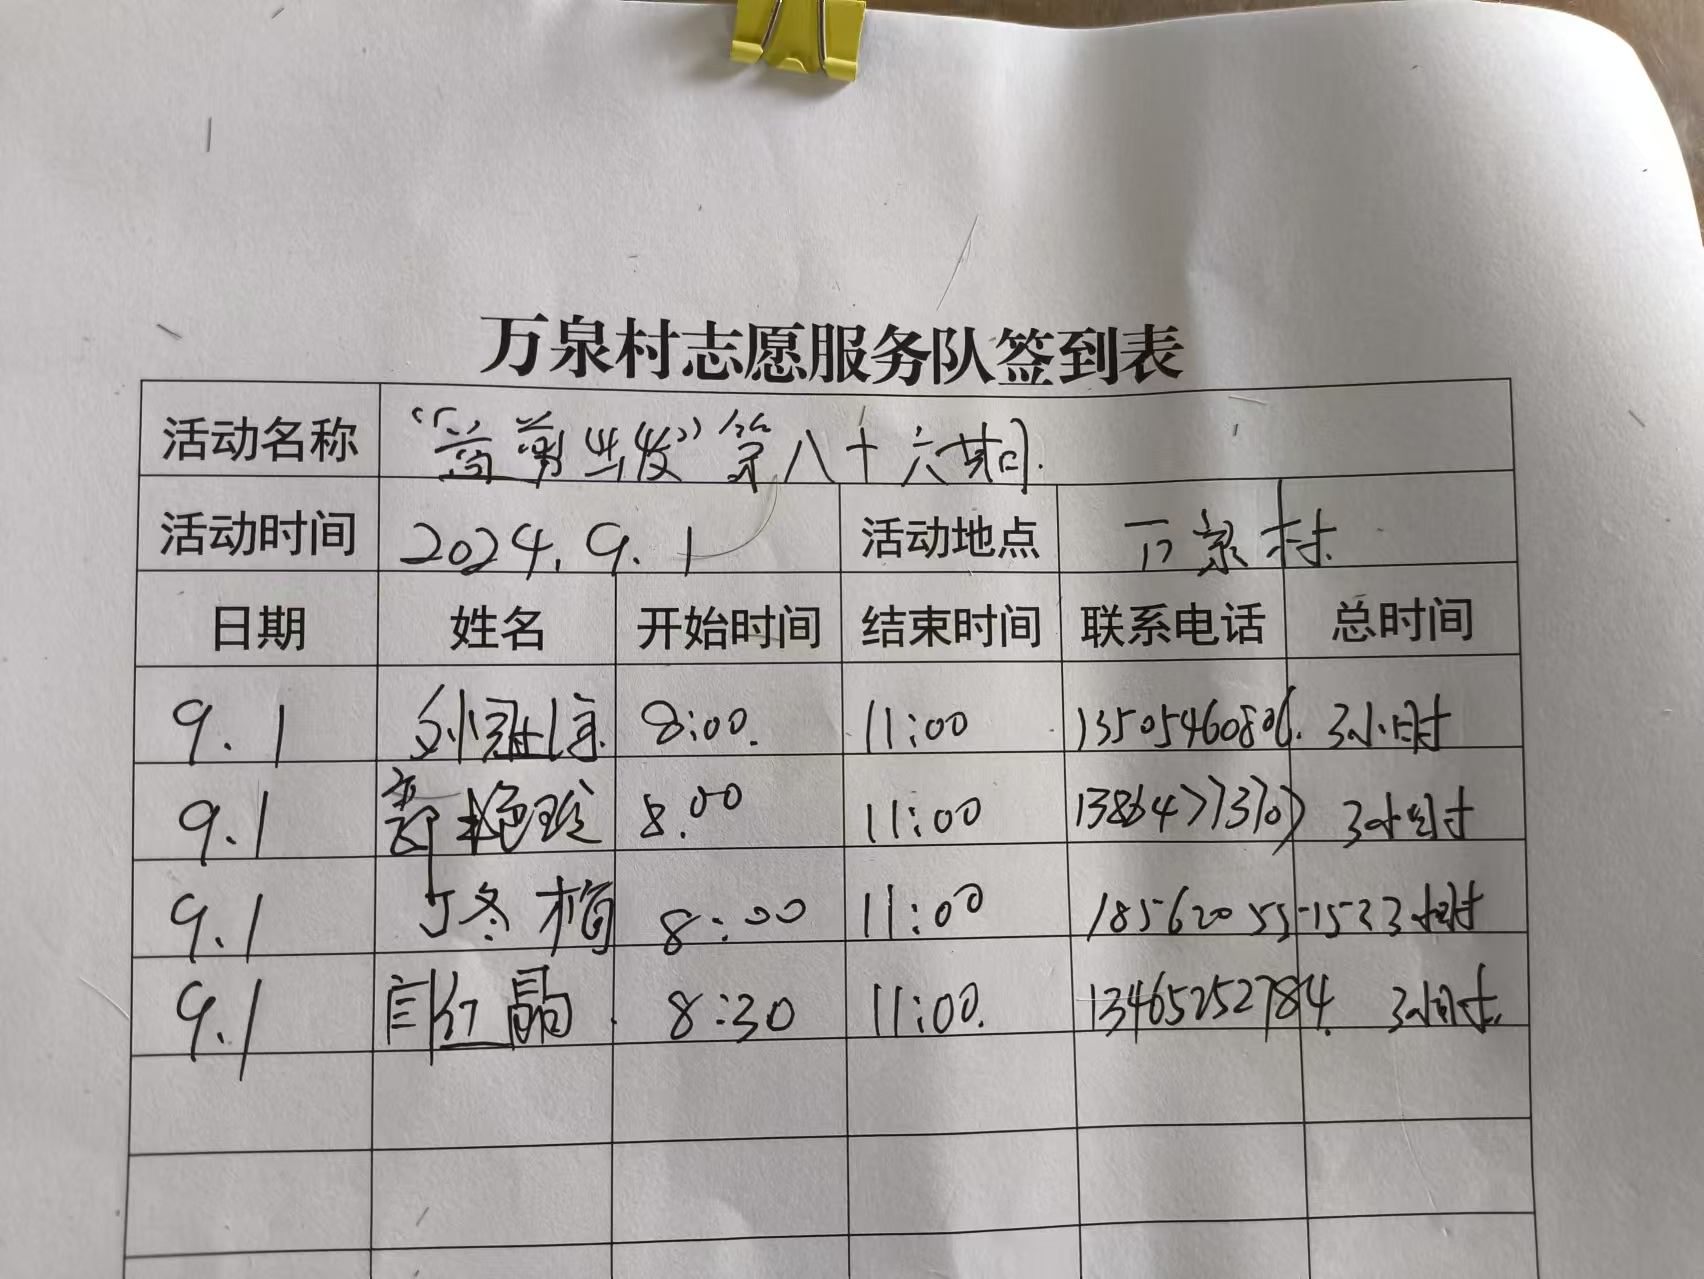 万泉村志愿服务队签到表
活动名称 “益剪出发”第八十六期
活动时间 2024.9.1 活动地点 万泉村
日期 姓名 开始时间 结束时间 联系电话 总时间
9.1 8:00 11:00 13505460806 3小时
9.1 艳玲 8.00 11:00 138647713707 3小时
9.1 丁冬梅 8:00 11:00 18562055152 3小时
9.1 红晶 8:30 11:00 13465252784 3小时